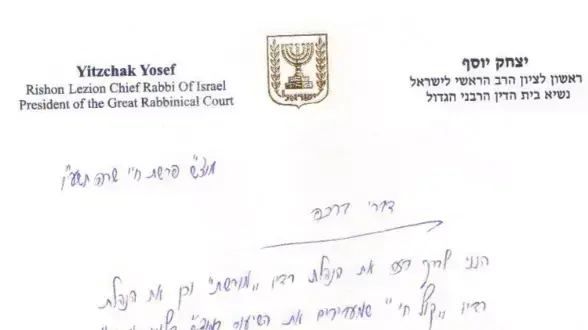 Yitzchak Yosef
Rishon Lezion Chief Rabbi Of Israel
President of the Great Rabbinical Court
ישראל
יצחק יוסף
ראשון לציון הרב הראשי לישראל
נשיא בית הדין הרבני הגדול
מוצ"ש פרשת חיי שרה תשע"ו
דברי ברכה
הנני לברך בזה את הנהלת רדיו "מורשת" וכן את הנהלת
רדיו "קול חי" שמעבירים את השיעור